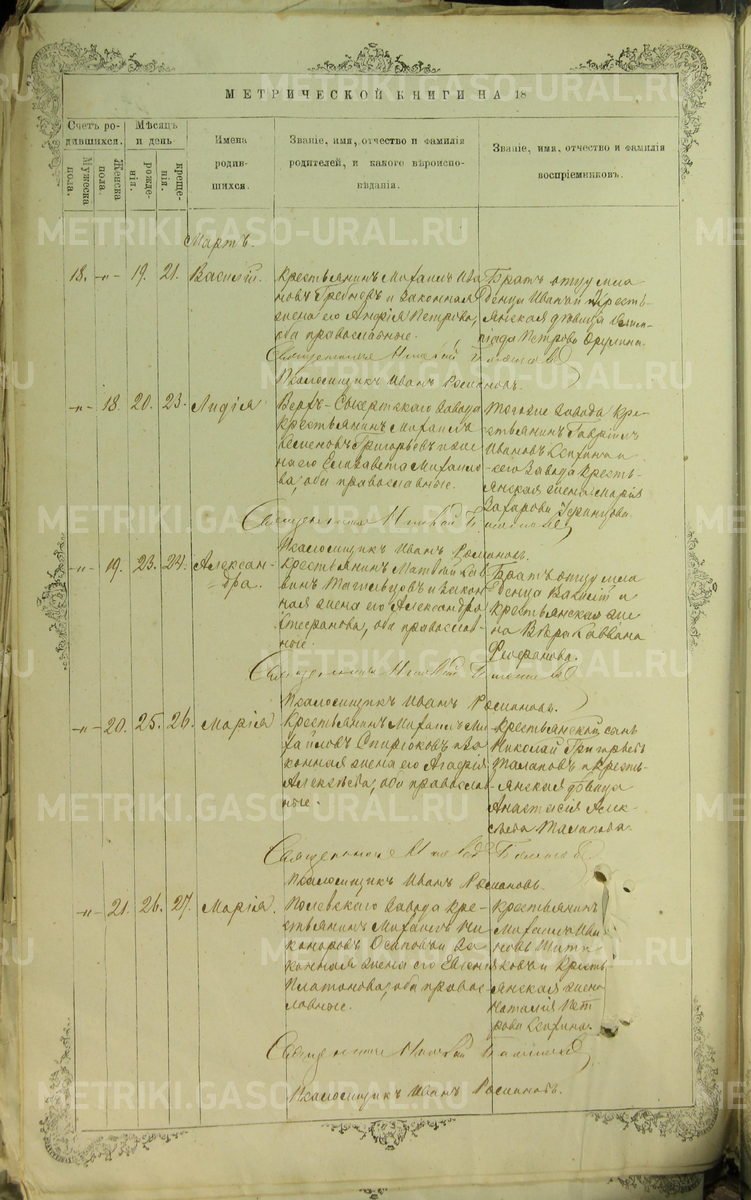 МЕТРИЧЕСКОЙ КНИГИ НА 18
Счетъ ро-
дившихся.
Мужеска
пола.
Женска
пола.
Мѣсяцъ
и день
рожде-
нія.
креще-
нія.
Имена
родив-
шихся.
Званіе, имя, отчество и фамилія
родителей, и какого вѣроиспо-
вѣданія.
Званіе, имя, отчество и фамилія
воспріемниковъ.
Мартъ.
18. -"- 19. 21. Василій.
Крестьянинъ Михаилъ Ива
новъ Гребневъ и законная
жена его Петрова,
оба православные.
Братъ отцу мла
денца Иванъ и кресть-
янская дѣвица
Петрова
Священникъ Николай
Псаломщикъ Иванъ Романовъ.
-"- 18. 20. 23. Лидія
Верхъ-Сысертскаго завода
крестьянинъ Михаилъ
Семеновъ Григорьевъ и же
на его Елизавета Михаило
ва, оба православные.
Тогоже завода кре-
стьянинъ Гавріилъ
Ивановъ и
сего завода кресть-
янская жена Марія
Захарова
Священникъ Николай
Псаломщикъ Иванъ Романовъ.
-"- 19. 23. 24. Алексан-
дра.
Крестьянинъ Матвѣй Сав
винъ и закон-
ная жена его Александра
Стефанова, оба православ-
ные.
Братъ отцу мла
денца Василій и
крестьянская же
на Вѣра Саввина
Священникъ Николай
Псаломщикъ Иванъ Романовъ.
-"- 20. 25. 26. Марія
Крестьянинъ Михаилъ Ми
хайловъ Спиряковъ и за
конная жена его Агафія
Алексѣева, оба православ
ные.
Крестьянскій сынъ
Николай Григорьевъ
Талаповъ и кресть-
янская дѣвица
Анастасія Алек-
сѣева Талапова.
Священникъ Николай
Псаломщикъ Иванъ Романовъ.
-"- 21. 26. 27. Марія.
Полевскаго завода кре-
стьянинъ Михаилъ Ни
каноровъ Осиповъ и за
конная жена его Евгенія
Платонова, оба правос-
лавные.
Крестьянинъ
Михаилъ Ива
новъ
и кресть-
янская жена
Наталія Пет
рова
Священникъ Николай
Псаломщикъ Иванъ Романовъ.
METRIKI.GASO-URAL.RU